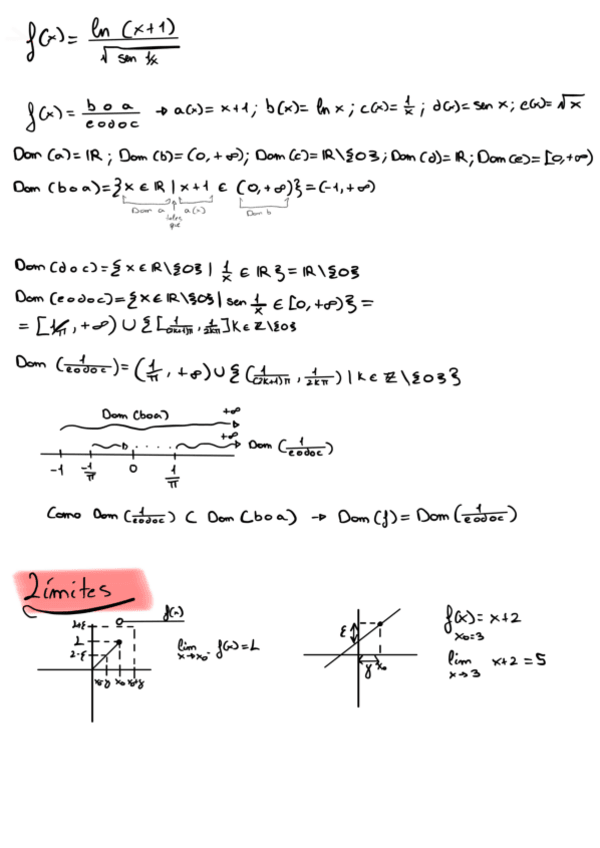 f(x) = ln (x+1) / √(sen 1/x)
f(x) = b o a / e o d o c → a(x) = x+1; b(x) = ln x; c(x) = 1/x; d(x) = sen x; e(x) = √x
Dom (a) = ℝ; Dom (b) = (0, +∞); Dom (c) = ℝ\{0}; Dom (d) = ℝ; Dom (e) = [0, +∞)
Dom (b o a) = {x ∈ ℝ | x+1 ∈ (0, +∞)} = (-1, +∞)
Dom a tales que a(x) Dom b
Dom (d o c) = {x ∈ ℝ\{0} | 1/x ∈ ℝ} = ℝ\{0}
Dom (e o d o c) = {x ∈ ℝ\{0} | sen 1/x ∈ [0, +∞)} =
= [1/π, +∞) ∪ {[1/(2k+1)π, 1/2kπ] k ∈ ℤ\{0}
Dom (1/eodoc) = (1/π, +∞) ∪ {(1/(2k+1)π, 1/2kπ) | k ∈ ℤ\{0}}
Dom (boa) +∞
+∞ Dom (1/eodoc)
-1 -1/π 0 1/π
Como Dom (1/eodoc) ⊂ Dom (boa) → Dom (f) = Dom (1/eodoc)
Límites
L+ε f(x)
L
lim x→x₀ f(x) = L
x₀ x₀+γ
ε
γ x₀
f(x) = x+2
x₀=3
lim x→3 x+2 = 5